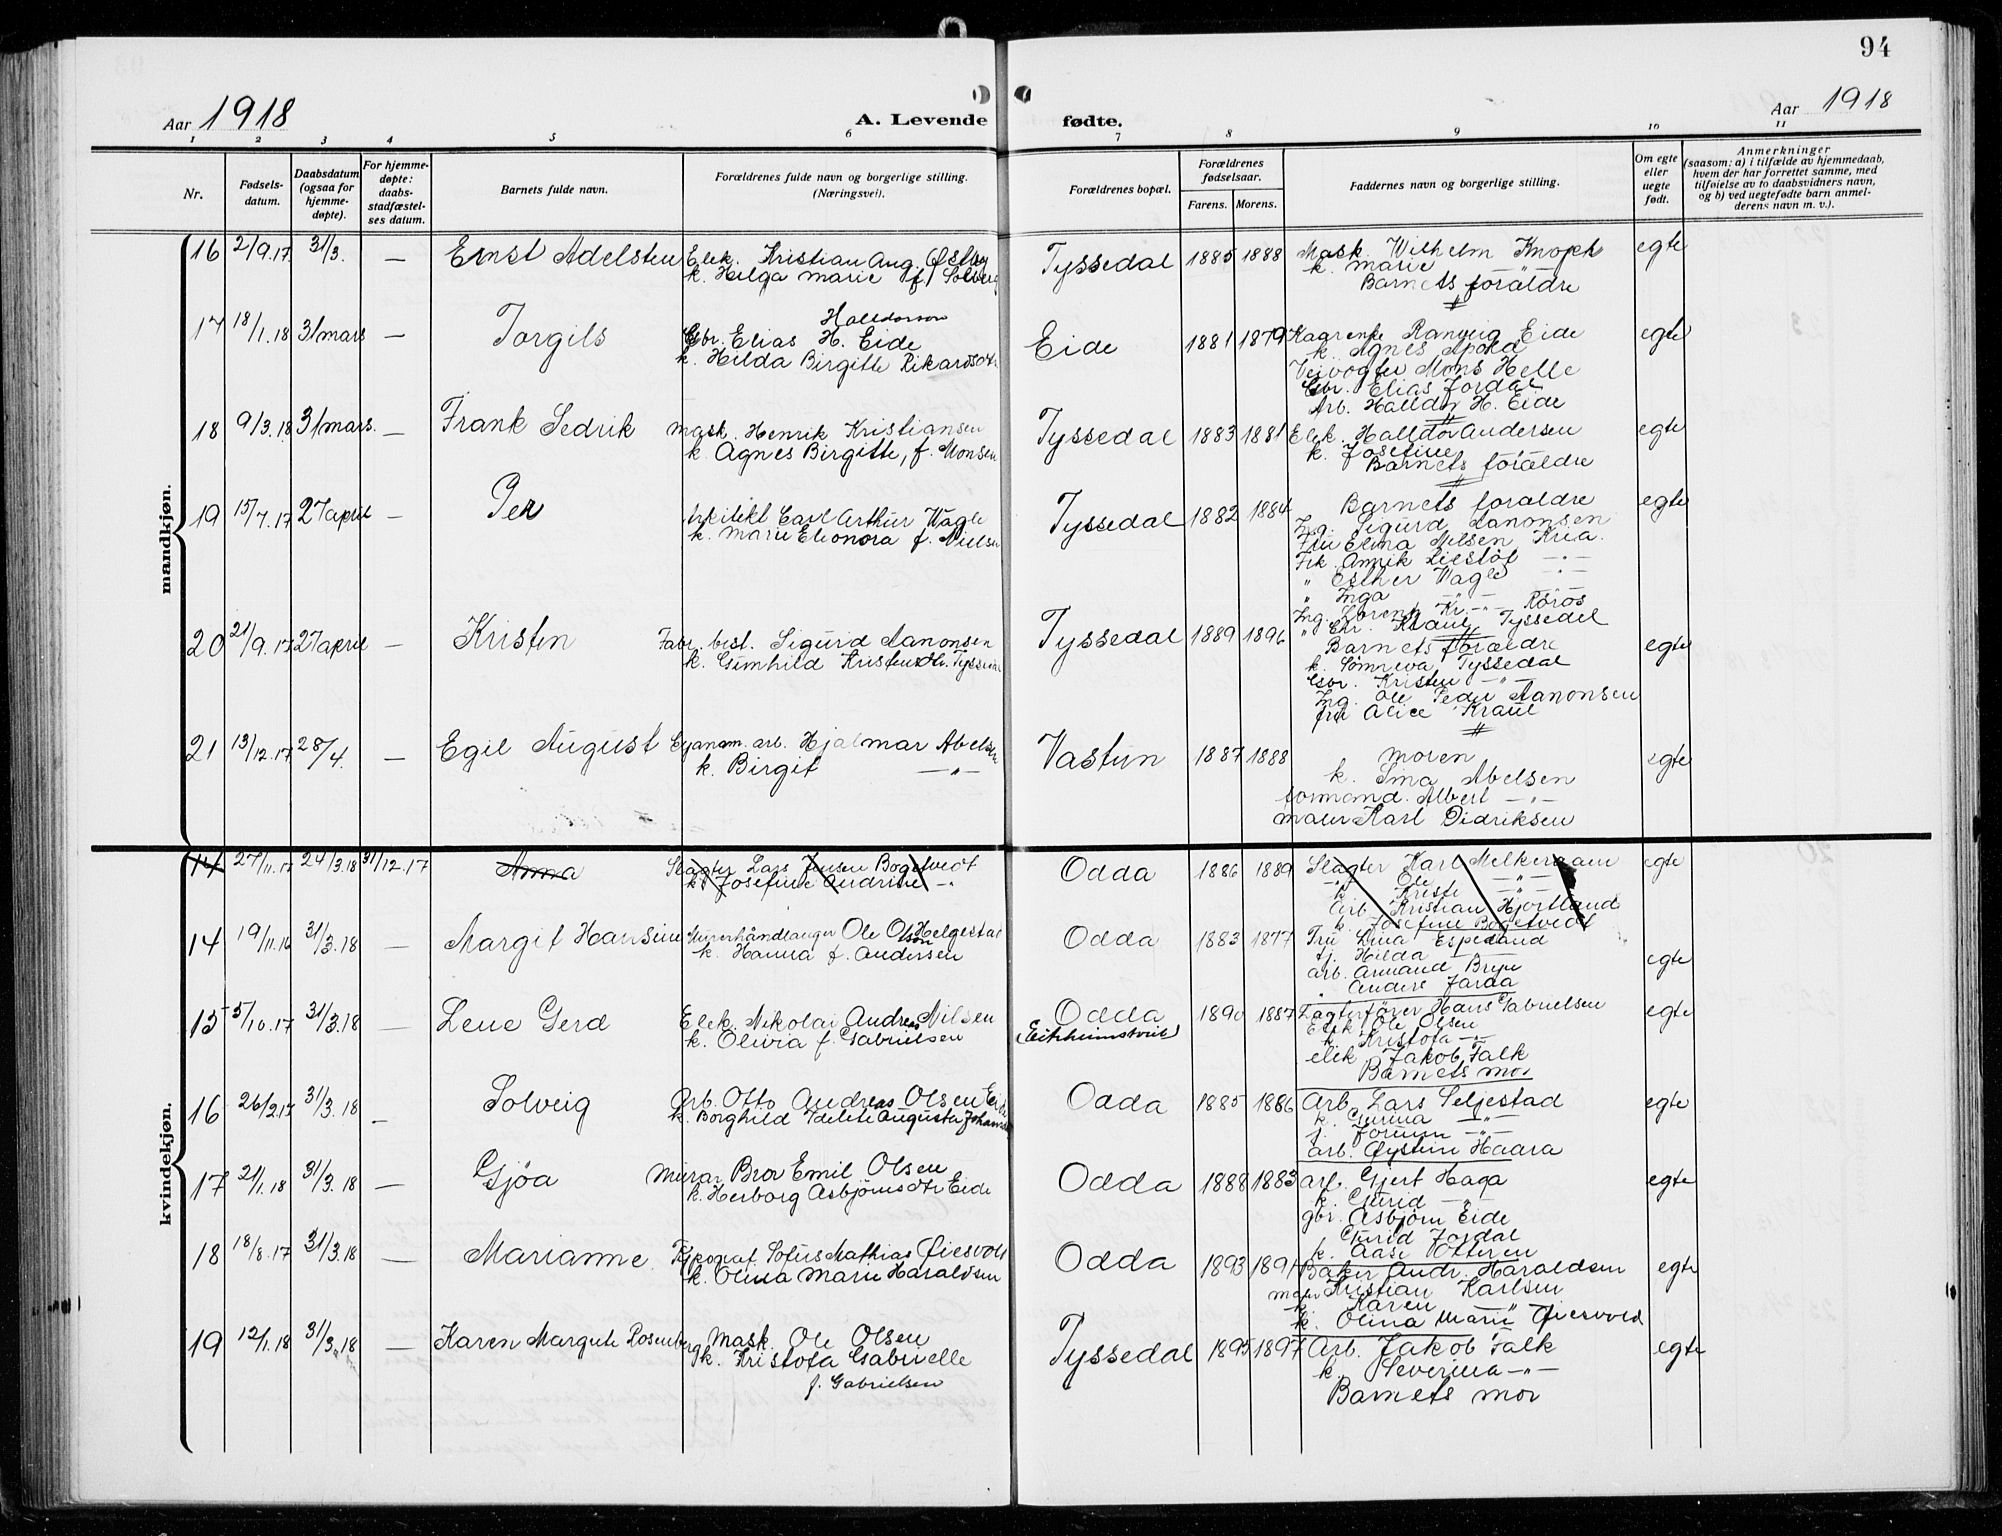 94
Aar 1918
A. Levende fødte.
Aar 1918
1 2 3 4 5 6 7 8 9 10 11
Nr.
Fødsels-
datum.
Daabsdatum
(ogsaa for
hjemme-
døpte).
For hjemme-
døpte:
daabs-
stadfæstel-
ses datum.
Barnets fulde navn.
Forældrenes fulde navn og borgerlige stilling.
(Næringsvei).
Forældrenes bopæl.
Forældrenes
fødselsaar.
Farens. Morens.
Faddernes navn og borgerlige stilling.
Om egte
eller
uegte
født.
Anmerkninger
(saasom: a) i tilfælde av hjemmedaab,
hvem der har forrettet samme, med
tilføielse av to daabsvidners navn,
og b) ved uegtefødte barn anmel-
derens navn m. v.).
mandkjøn.
16 2/9.17 31/3. — Ernst Adelsten Elek. Kristian Aug. Østby
k. Helga Marie f. Solberg
Tyssedal 1885 1888 Mask. Wilhelm Knoph egte
k. Marie —"—
Barnets forældre
17 18/1.18 31 mars — Torgils Halldorson
Gbr. Elias H. Eide
k. Hilda Birgitte Rikardsdtr
Eide 1881 1879 Ranveig Eide egte
k. Agnes
Veivogter Mons Helle
Gbr. Elias Jordal
Arb. Halldor H. Eide
18 9/3.18 31 mars. — Frank Sedrik Mask. Henrik Kristiansen
k. Agnes Birgitte, f. Monsen
Tyssedal 1883 1881 Elek. Halldor Andersen egte
k. Josefine
Barnets forældre
19 15/7.17 27 april — Per Arkitekt Carl Arthur Wagle
k. Marie Eleonora f. Nielsen
Tyssedal 1882 1884 Barnets forældre egte
Ing. Sigurd Aanonsen
Fru Elina Nilsen Kria.
Frk. Annik Liestøl —"—
" Esther Wagle —"—
" Inga —"—
Ing. Lorentz Kr. —"— Røros
" Chr. Kraul Tyssedal
20 21/9.17 27 april — Kristen Fabr. best. Sigurd Aanonsen
k. Gunhild Kristensdtr. Tyssedal
Tyssedal 1889 1896 Barnets forældre egte
k. Synneva Tyssedal
Gbr. Kristen —"—
Ing. Ole Peder Aanonsen
fru Alice Kraul
21 13/12.17 28/4. — Egil August Cyanam. arb. Hjalmar Abelsen
k. Birgit —"—
Vastun 1887 1888 Moren egte
k. Ima Abelsen
formand. Albert —"—
maler Karl Didriksen
kvindekjøn.
14 27/11.17 24/3.18 31/12.17 Anna Slagter Lars Jensen Bogetvedt
k. Josefine Andrine —"—
Odda 1886 1889 Slagter Karl egte
—"— Ole —"—
k. Kristi —"—
Arb. Kristian Hjortland
k. Josefine Bogetvedt
14 19/11.16 31/3.18 — Margit Hansine Murerhåndlanger Ole Olson Helgestad
k. Hanna f. Andersen
Odda 1883 1877 Fru Lina Espeland egte
f. Hilda —"—
arb. Armand Brye
" Anders Jarda
15 5/10.17 31/3.18 — Lene Gerd Elek. Nikolai Andreas Nilsen
k. Olivia f. Gabrielsen
Odda 1890 1887 Hans Gabrielsen egte
(Eitrheimstveit)
Elek. Ole Olsen
k. Kristofa —"—
elek. Jakob Falk
Barnets mor
16 26/2.17 31/3.18 — Solveig Arb. Otto Andreas Olsen Eide
k. Borghild Idelete Augusta Johansen
Odda 1885 1886 Arb. Lars Seljestad egte
k. Gurina —"—
f. Jorunn —"—
arb. Øystein Haara
17 21/1.18 31/3.18 — Gjøa Murar Bror Emil Olsen
k. Herborg Asbjørnsdtr Eide
Odda 1888 1883 arb. Gjert Haga egte
k. Gurid —"—
gbr. Asbjørn Eide
Gurid Jordal
k. Aase Otteren
18 18/8.17 31/3.18 — Marianne. Typograf. Sofus Mathias Øiesvold
k. Olina Marie Haraldsen
Odda 1893 1891 Baker Andr. Haraldsen egte
maler Kristian Karlsen
k. Karen —"—
k. Olina Marie Øiesvold
19 12/1.18 31/3.18 — Karen Margrete Rosenberg Mask. Ole Olsen
k. Kristofa Gabrielle
f. Gabrielsen
Tyssedal 1895 1897 Arb. Jakob Falk egte
k. Severina —"—
Barnets mor